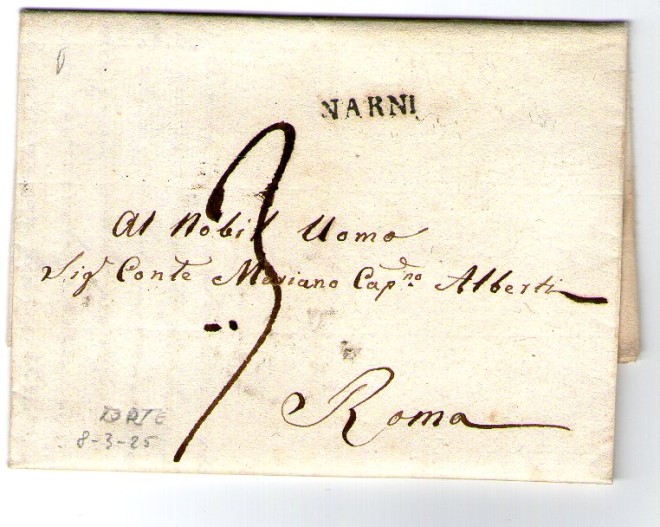 NARNI
3
Al Nobil Uomo
Sig.r Conte Mariano Cap.no Alberti
Roma
8-3-25